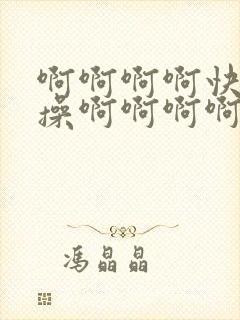 啊啊啊啊快
操啊啊啊啊
冯晶晶